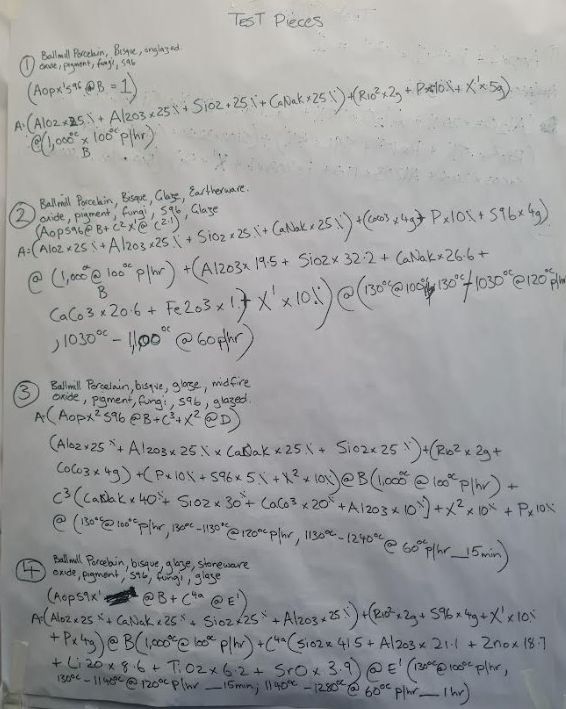 TEST PIECES
① Ballmill Porcelain, Bisque, unglazed.
oxide, pigment, fungi, S96
(Aopx'S96 @ B = 1)
A=(Al02 x 25% + Al203 x 25% + Si02 + 25% + CaNaK x 25%) + (Ri0² x 2g + Px10% + X' x 5g)
@ (1,000°C x 100°C p/hr)
B
② Ballmill Porcelain, Bisque, Glaze, Eartherware.
oxide, pigment, fungi, S96, Glaze
(AopS96 @ B + C²x' @ C2.1)
A=(Al02 x 25% + Al203 x 25% + Si02 x 25% + CaNaK x 25%) + (CoCo3 x 4g + Px10% + S96 x 4g)
@ (1,000°C @ 100°C p/hr) + (Al203 x 19.5 + Si02 x 32.2 + CaNaK x 26.6 +
B
CaCo3 x 20.6 + Fe203 x 1) + X' x 10%) @ (130°C @ 100°C, 130°C - 1030°C @ 120°C p/hr
, 1030°C - 1,100°C @ 60p/hr)
③ Ballmill Porcelain, bisque, glaze, midfire
oxide, pigment, fungi, S96, glazed.
A=(Aopx²S96 @ B + C³ + X² @ D)
(Al02 x 25% + Al203 x 25% x CaNaK x 25% + Si02 x 25%) + (Ri0² x 2g +
CoCo3 x 4g) + (Px10% + S96 x 5% + X² x 10%) @ B (1,000°C @ 100°C p/hr) +
C³ (CaNaK x 40% + Si02 x 30% + CaCo³ x 20% + Al203 x 10%) + X² x 10% + Px10%
@ (130°C @ 100°C p/hr, 130°C - 1130°C @ 120°C p/hr, 1130°C - 1240°C @ 60°C p/hr _ 15min)
④ Ballmill Porcelain, bisque, glaze, stoneware
oxide, pigment, S96, fungi, glaze
(AopS9x' @ B + C⁴ᵃ @ E')
A=(Al02 x 25% + CaNaK x 25% + Si02 x 25% + Al203 x 25%) + (Ri0² x 2g + S96 x 4g + X' x 10%
+ Px4g) @ B (1,000°C @ 100°C p/hr) + C⁴ᵃ (Si02 x 41.5 + Al203 x 21.1 + Zn0 x 18.7
+ Li20 x 8.6 + Ti02 x 6.2 + Sr0 x 3.9) @ E' (130°C @ 100°C p/hr,
130°C - 1140°C @ 120°C p/hr _ 15min, 1140°C - 1280°C @ 60°C p/hr _ 1hr)